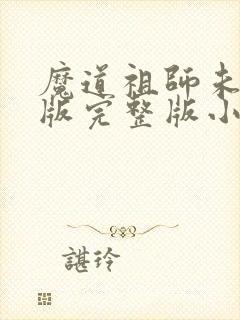 魔道祖師未
版完整版小
諶玲